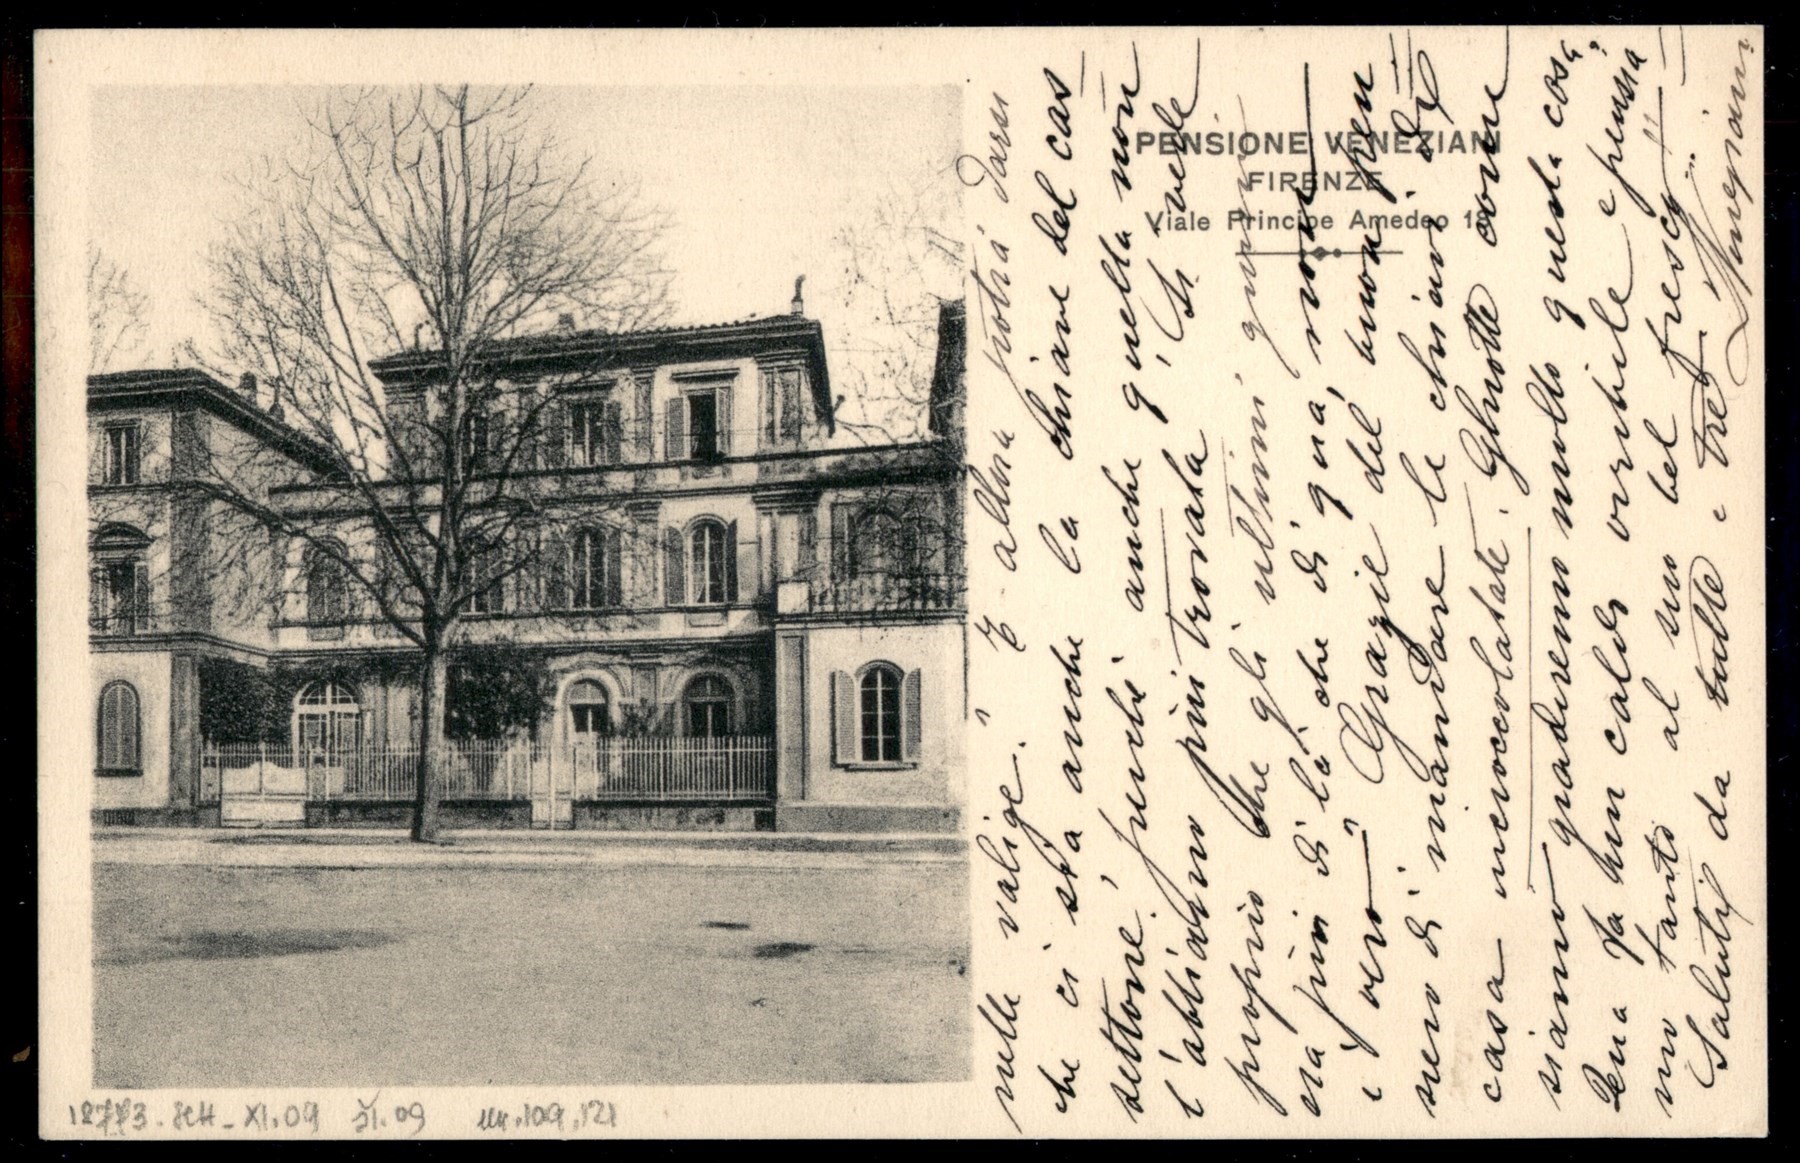 PENSIONE VENEZIANI
FIRENZE
Viale Principe Amedeo 18
nelle valige. E allora potrà darsi
che ci sia anche la chiave del cas-
settone, anche quella non
l'abbiamo più trovata. Si vede
proprio che gli ultimi giorni
era più di là che di qua, non
è vero? Grazie del buon pen
siero di mandare le chiavi di
casa Ghiotte come
siamo gradiremo molto questa cosa.
Qua fa un caldo orribile e pensa
no tanto al suo bel fresco!!...
Saluti da tutte e tre.
18773. XI.09 XI.09 109,121